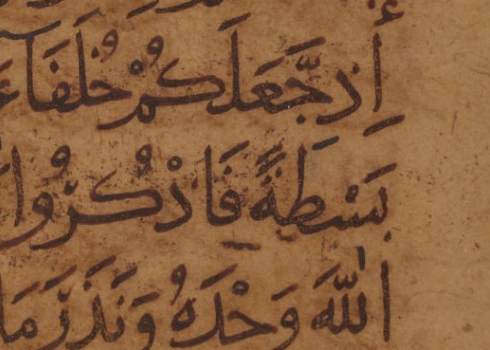 إِذ جَّعَلَكُمْ خُلَفَآءَ
بَسْطَةً فَاذْكُرُوا
اللَّهَ وَحْدَهُ وَنَذَرَ مَا